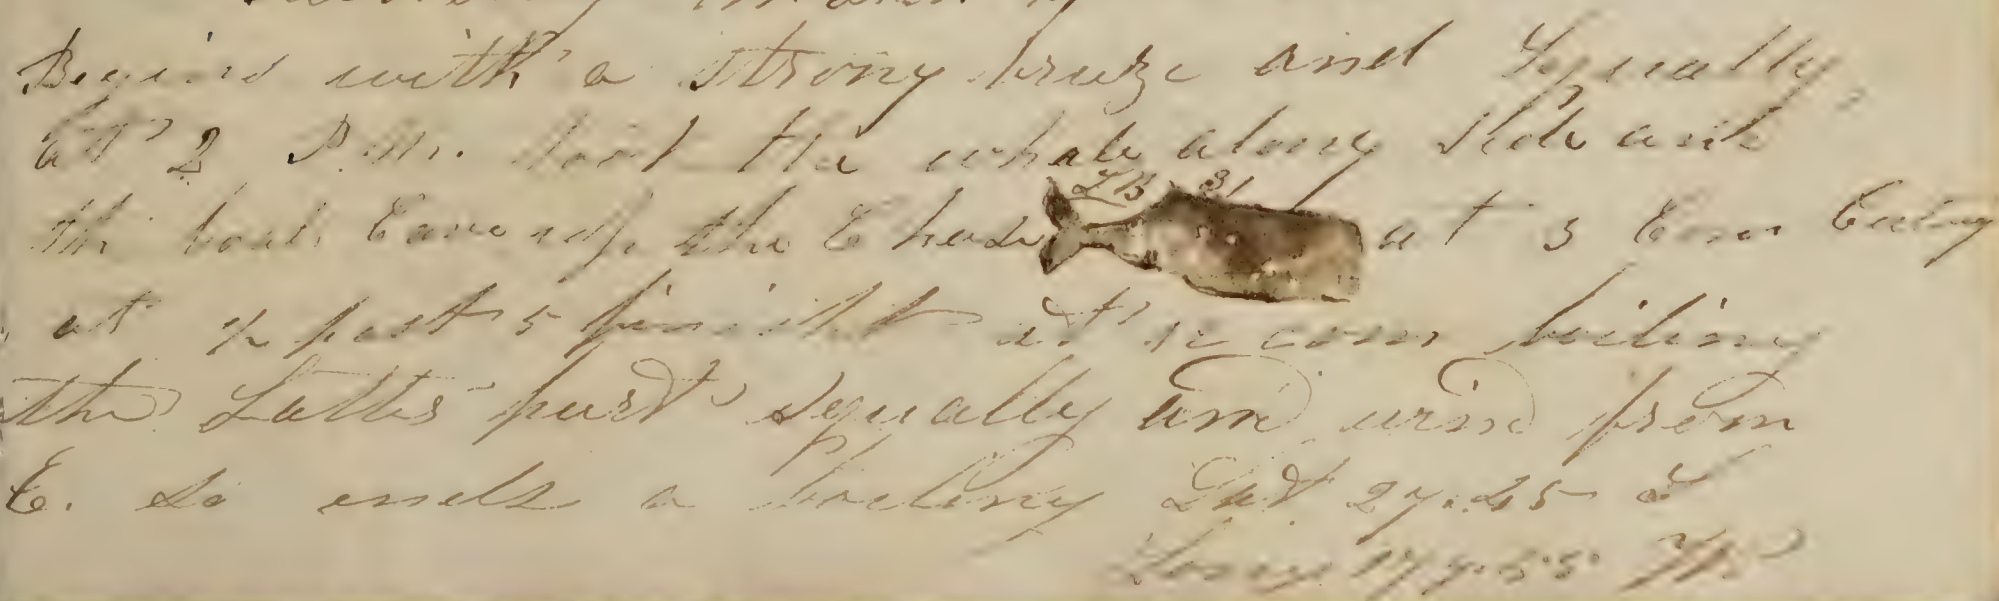 Begins with a strong breeze and Squally
at 2 P.M. had the whale along side and
LB 31
the boats Came up the Chase at 3 Com Cuting
at ½ past 5 finisht at 12 com boiling
the Latter part Squally and wind from
E. So ends a boiling Lat 27.45 S
Long 17